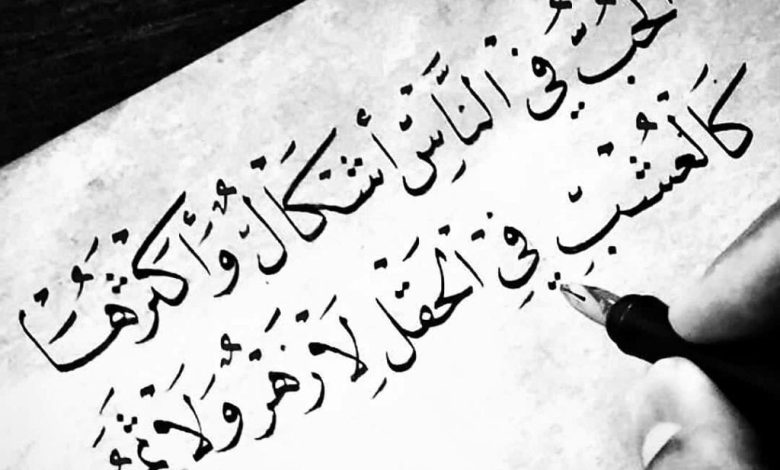 الحُبُّ في النَّاسِ أشكَالٌ وَأكثَرُهَا
كَالعُشبِ فِي الحَقلِ لَا زَهرٌ وَلَا ثَمَ